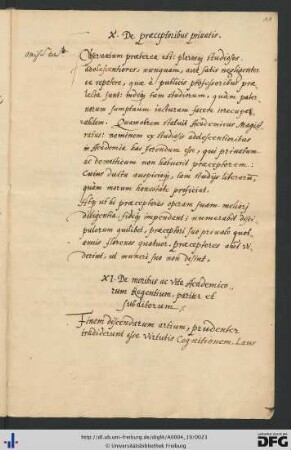 X. De praeceptoribus privatis.
Observatum praeterea est: plerosq studiosos
adolescentiores nunquam, aut satis negligenter
ea repetere, quae à publicis professoribus prae-
lecta sunt: indeq tam studiorum, quàm paren-
tum sumptuum iacturam facere irrecupe-
rabilem. Quamobrem statuit Academicus Magist-
ratus: neminem ex studiosis adolescentioribus
in Academia hac ferendum esse, qui privatum
ac domesticum non habuerit praeceptorem:
Cuius ductu auspicioq, tam studijs literarū,
quàm morum honestate proficiat.
Atq ut hi praeceptores operam suam meliori
diligentia, fideq impendant; numerabit disci-
pulorum quilibet, praeceptori suo privato quot-
annis florenos quatuor. Praeceptores aut vi-
derint, ut muneri suo non desint.
XI. De moribus ac vita Academico-
rum Regentium, pariter et
subditorum.
Finem discendarum artium, prudenter
tradiderunt esse Virtutis Cognitionem. Laus
http://dl.ub.uni-freiburg.de/diglit/A0004_19/0023
DFG